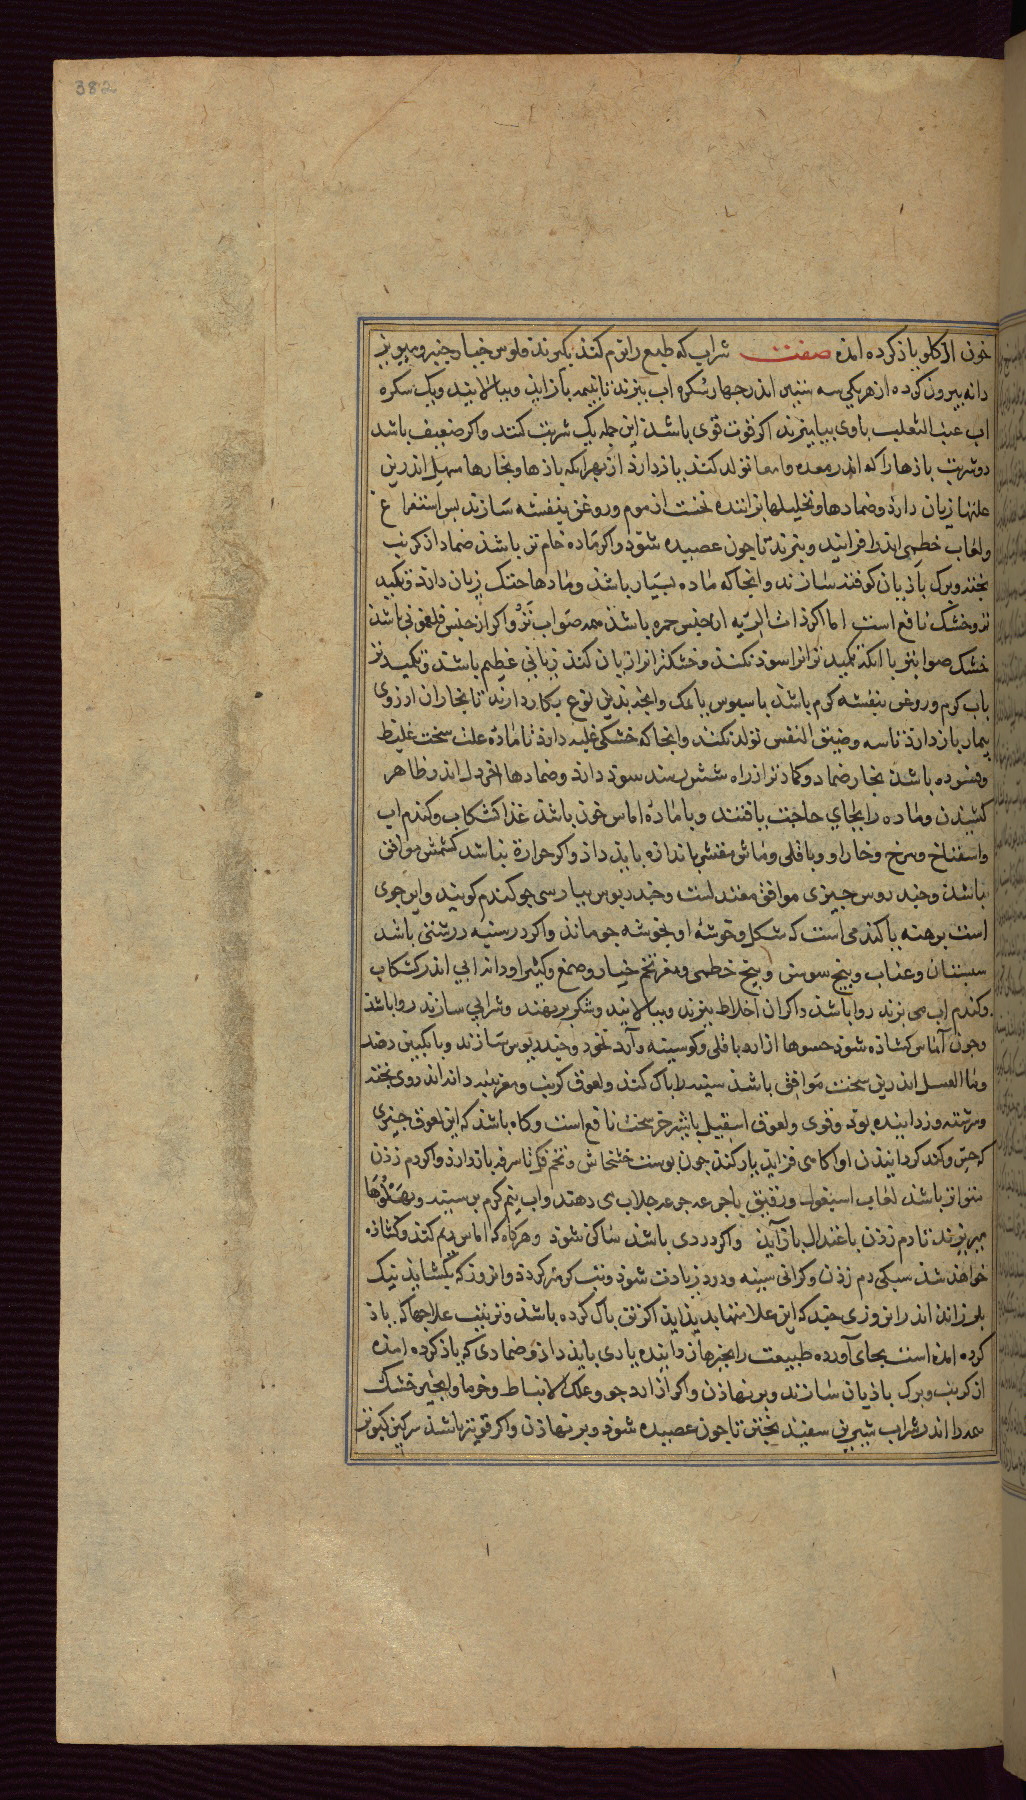 382
خون از کلو یاذ کرده امذه صفت شرابی که طبع را نرم کند بکیرند فلوس خیار چنبر و مویز
دانه بیرون کرده از هر یکی سه ستیر اندر چهار سکره اب بپزند تا بنیمه باز اید و ببالایند و یک سکره
اب عنب الثعلب باوی بیامیزند اکر قوت قوی باشد این جمله یک شربت کنند و اکر ضعیف باشد
دو شربت باذها را که اندر معده و امعا تولد کند باز دارد از بهر انکه باذها و بخارها سهیل اندرین
علتها زیان دارد و ضمادها و تحلیلها نخست از موم و روغن بنفشه سازند بس استفراغ
ولعاب خطمی اندر افزایند و بپزند تا چون عصیده شود و اکر ماده خام تر باشد ضماد از کرنب
پخته و برک باذیان کوفته سازند و انجا که ماده بسیار باشد و مادها خنک زیان دارد و تکمید
تر و خشک نافع است اما اکر ذات الریه از جنس حمره باشد همه صواب تر و اکر از جنس فلغمونی باشد
خشک صوابتر با انکه تکمید تر انرا سود نکند و خشک تر انرا زیان کند زیانی عظیم باشد و تکمید تر
باب کرم و روغن بنفشه کرم باشد یا سبوس با نمک وانچه بدین نوع بکار دارند تا بخار ان از روی
بیمار باز دارد تاسه و ضیق النفس تولد نکند وانجا که خشکی غلبه دارد تا ماده علت سخت غلیظ
باشد بخار ضماد و کماد تر از راه شش سود دارد و ضمادها اندر ظاهر
کشیدن و ماده را بجای حاجت یافتند و با ماده اماس خون باشد غذا کشکاب و کندم اب
واسفناخ و سرمخ و باقلی و ماش مقشر باندازه باید داد و اکر حرارة نباشد کشمش موافق
باشد و خندروس چیزی موافق معتدلست و خندریوس بپارسی جو کندم کویند و این جوی
است برهنه با کندمی است که شکل و خوشهٔ او بخوشه جو ماند و اکر در سینه درشتی باشد
سبستان و عناب و بیخ سوس و بیخ خطمی و مغز تخم خیار و صمغ و کتیرا اندر کشکاب
و کندم اب می بزند روا باشد و اکر ان اخلاط بپزند و ببالایند و شکر برنهند و شرابی سازند روا باشد
و چون آماس کشاذه شود حسوها از ارد باقلی و کرسینه و آرد نخود و خندریوس سازند و با نکبین دهند
وما العسل اندرین سخت موافق باشد سینه را باک کند و لعوق کرنب و مغز پنبه دانه اندر وی پخته
و سرشته و زداینده بود و قوی و لعوق اسقیل باشیر خر سخت نافع است و کاه باشد که این لعوق چیزی
که حس و کند کردانیدن او اکاسی فزاید یار کنند چون بوست خشخاش و تخم تا سرفه باز دارد و اکر دم زدن
متواتر باشد لعاب اسبغول و رقیق با جرعه جرعه جلاب می دهند واب نیم کرم بر سینه و بهلوها
می ریزند تا دم زدن باعتدال باز آید واکر دردی باشد ساکن شود و هرکاه که اماس ریم کند و کشاذه
خواهد شد سبکی دم زدن و کرانی سینه و درد زیادت شود و تب کرمتر کردد و انروز که بکشاید نیک
بلرزاند اندر انروزی چند که این علامتها بدید اید اکر تن باک کرده باشد و ترتیب علاجها که یاذ
کرده امذه است بجای آورده طبیعت را بچیزها زداینده یاری باید داد و ضمادی که یاذ کرده امذه
از کرنب و برک باذیان سازند و بر نهادن و اکر از ارد جو و علک الانباط و خرما و انجیر خشک
همه را اندر شراب شیرین سفید پختن تا چون عصیده شود و بر نهادن و اکر قویتر باشد سرکین کبوتر